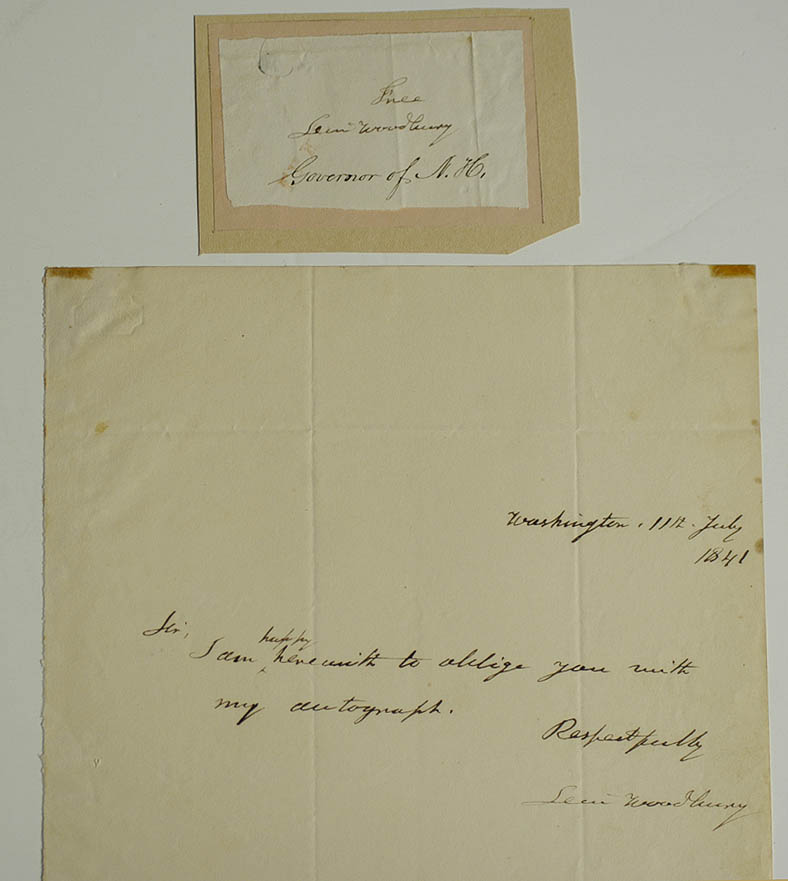 Free
Levi Woodbury
Governor of N. H.
Washington. 11th. July
1841
Sir,
happy
I am ‸ herewith to oblige you with
my autograph.
Respectfully
Levi Woodbury